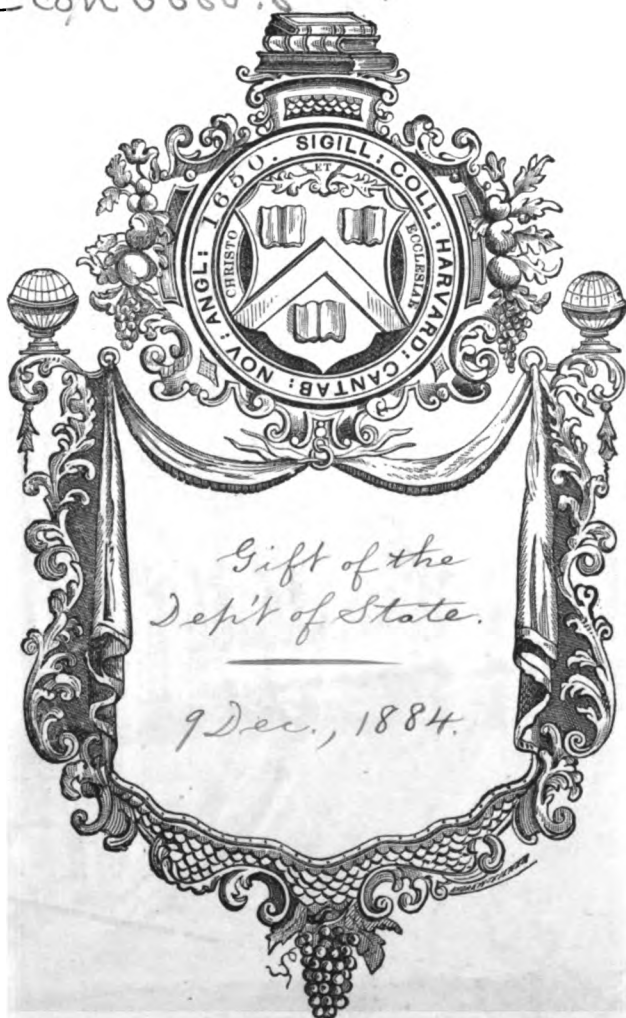 Econ
SIGILL: COLL: HARVARD: CANTAB: NOV: ANGL: 1650.
CHRISTO
ET
ECCLESIAE
Gift of the
Dep't of State.
9 Dec., 1884.